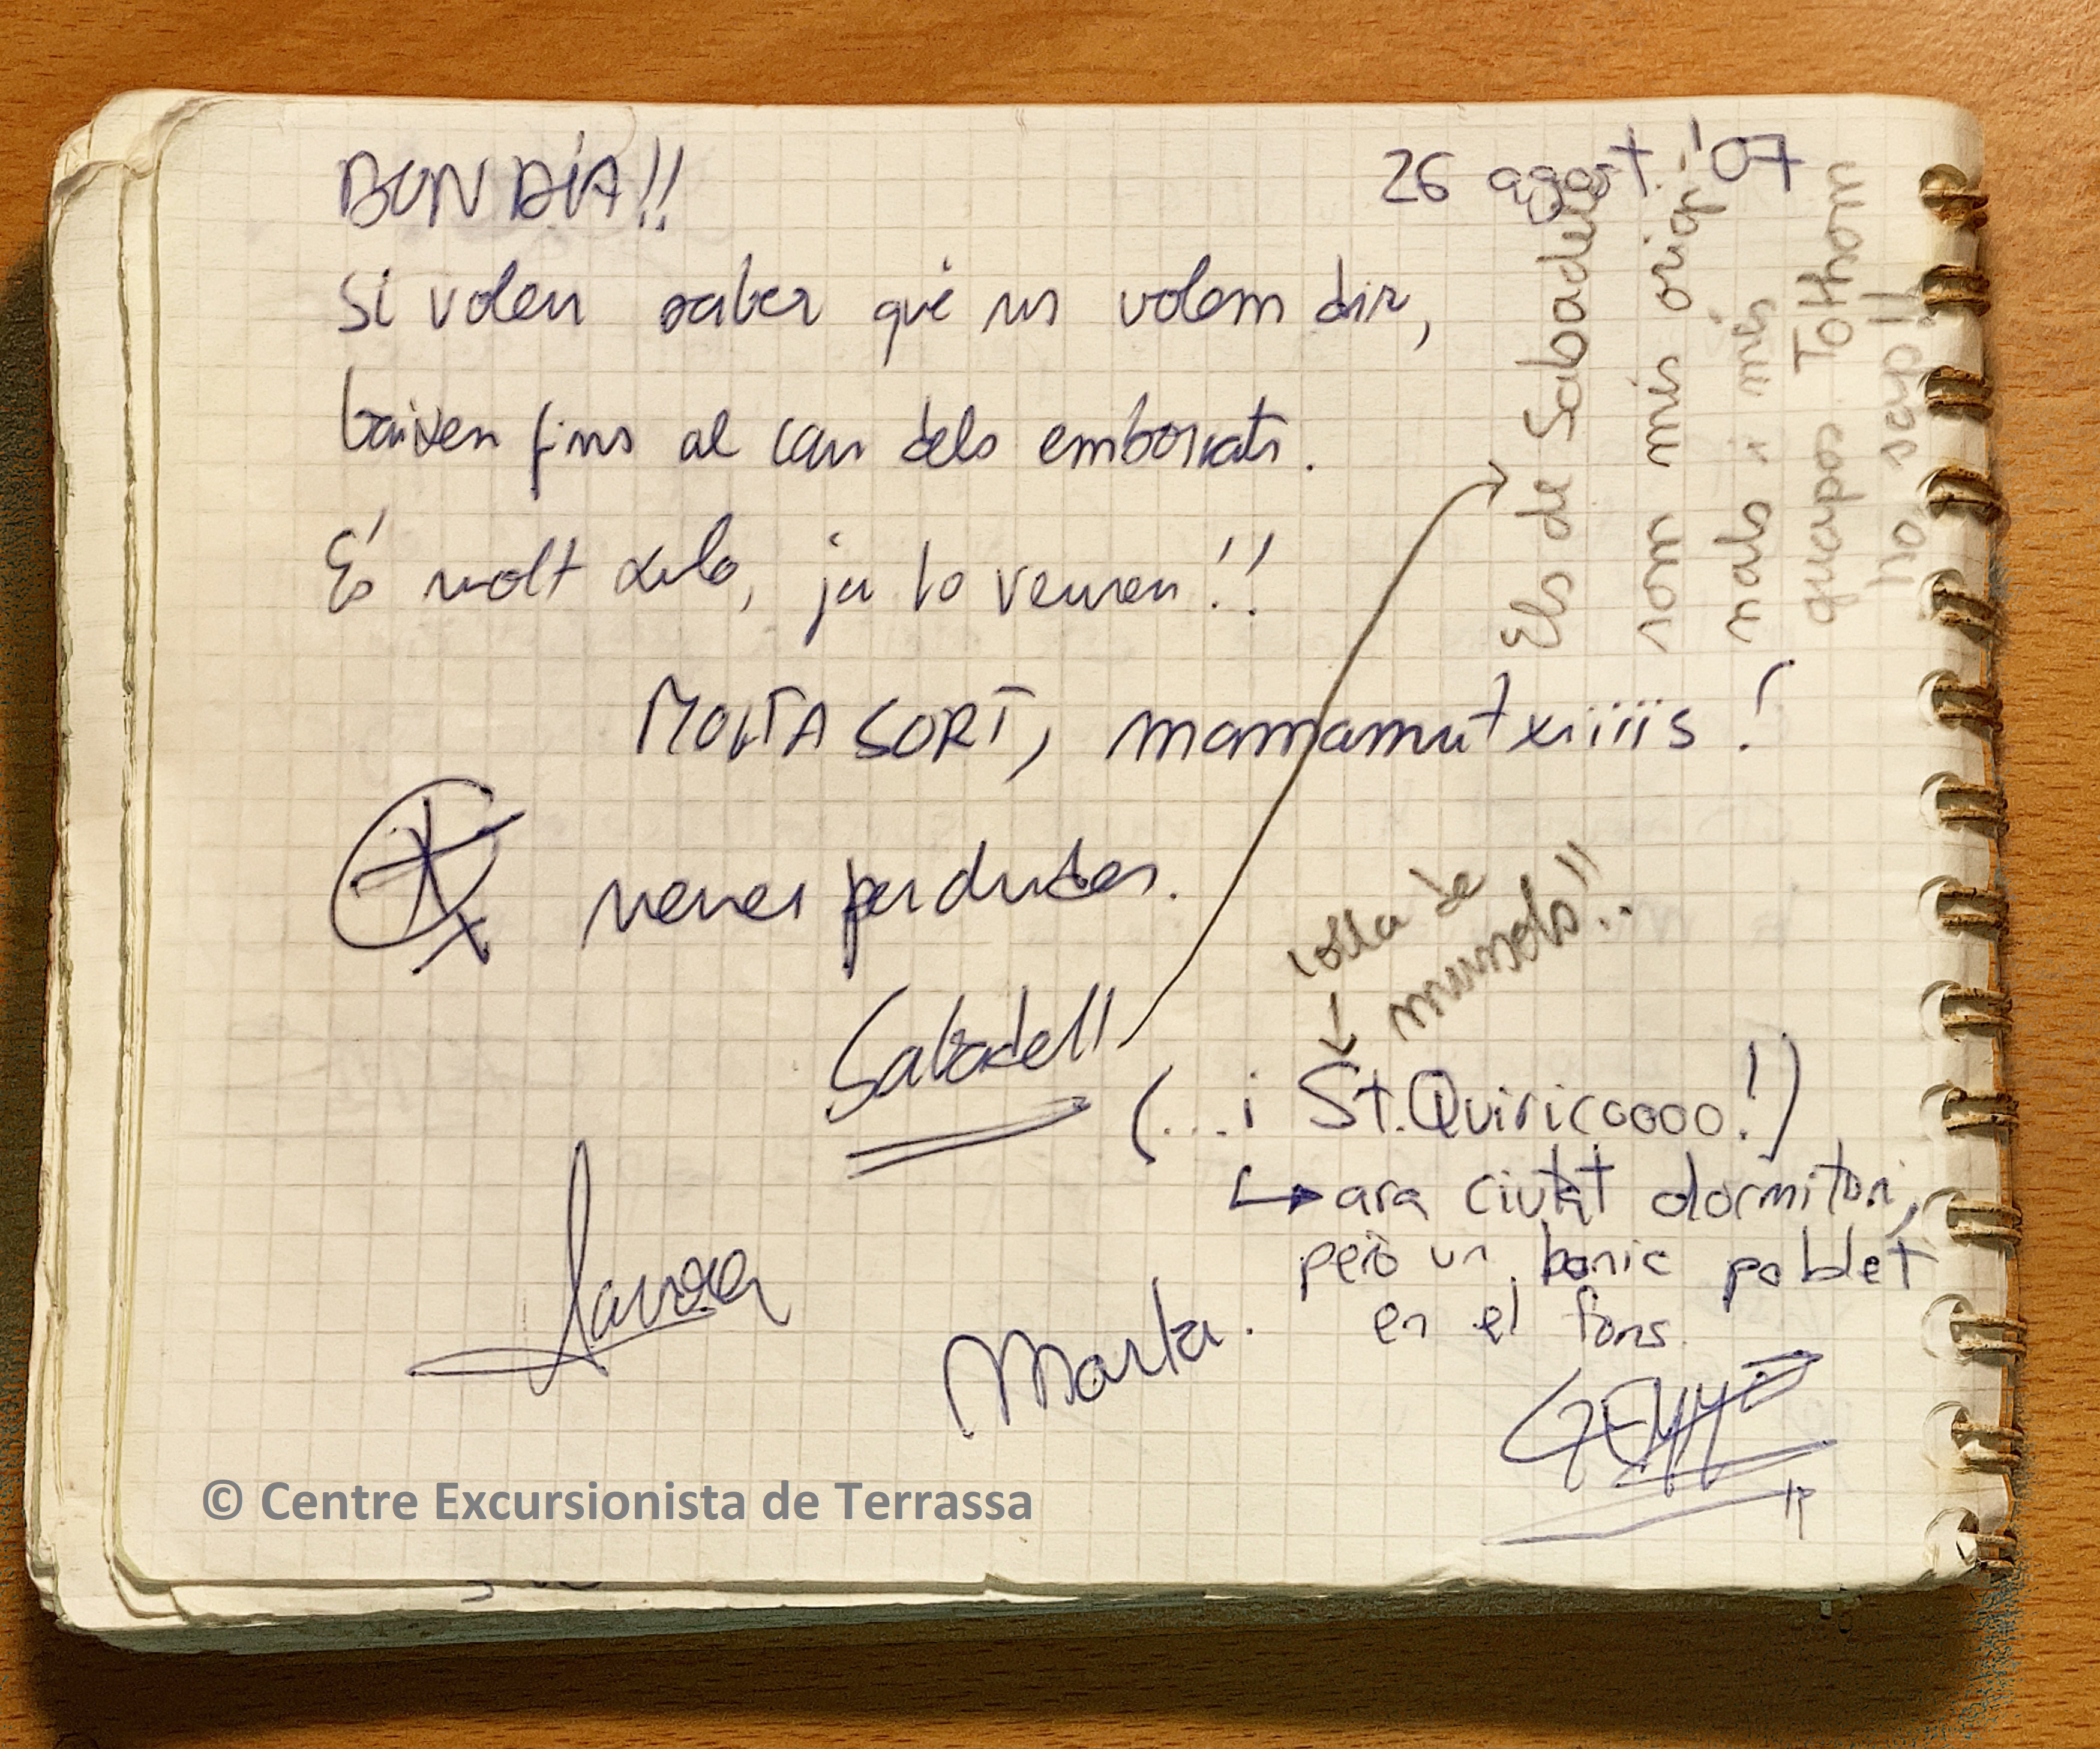 BON DÍA!!
26 agost '07
Si volen saber què us volem dir,
baixen fins al cau dels emboirats.
És molt xulo, ja ho veuren!!
MOLTA SORT, mamamutxiiiis!
nenes perdudes.
Sabadell
(...i St. Quiricoooo!)
ara ciutat dormitori,
però un bonic poblet
en el fons.
colla de
mussols!!
Els de Sabadell
som més origi-
nals i més
guapos. Tothom
ho sap!!
Laura
Marta.
© Centre Excursionista de Terrassa